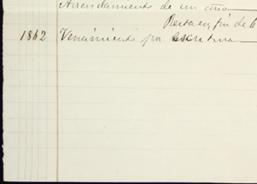 Arrendamiento de un año
Resta en fin de 6
1862 Vencimiento por escritura